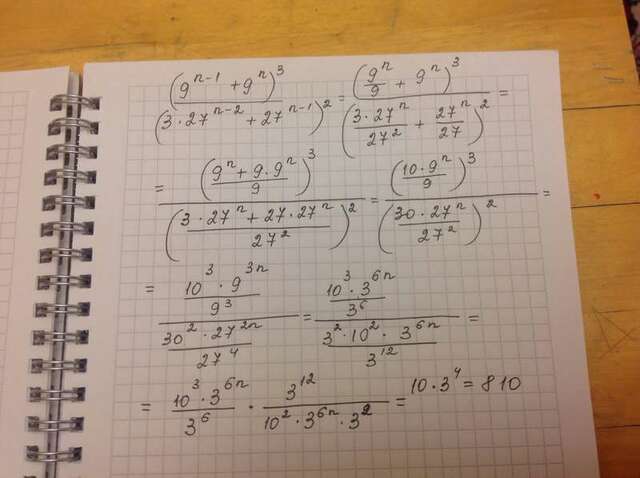 (9^{n-1} + 9^n)^3 / (3·27^{n-2} + 27^{n-1})^2 = (9^n/9 + 9^n)^3 / (3·27^n/27^2 + 27^n/27)^2 =
= ((9^n + 9·9^n)/9)^3 / ((3·27^n + 27·27^n)/27^2)^2 = (10·9^n/9)^3 / (30·27^n/27^2)^2 =
= (10^3·9^{3n}/9^3) / (30^2·27^{2n}/27^4) = (10^3·3^{6n}/3^6) / (3^2·10^2·3^{6n}/3^{12}) =
= 10^3·3^{6n}/3^6 · 3^{12}/(10^2·3^{6n}·3^2) = 10·3^4 = 810